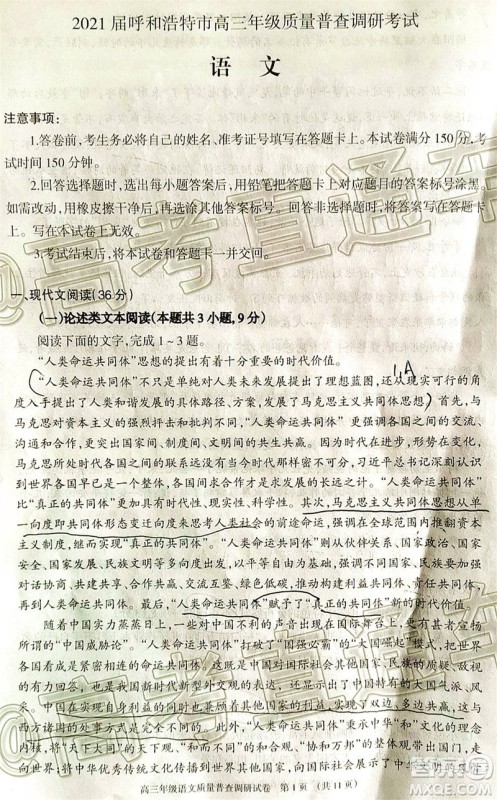 2021 届呼和浩特市高三年级质量普查调研考试
语 文
注意事项:
1.答卷前,考生务必将自己的姓名、准考证号填写在答题卡上。本试卷满分 150 分,考
试时间 150 分钟。
2.回答选择题时,选出每小题答案后,用铅笔把答题卡上对应题目的答案标号涂黑。
如需改动,用橡皮擦干净后,再选涂其他答案标号。回答非选择题时,将答案写在答题卡
上。写在本试卷上无效。
3.考试结束后,将本试卷和答题卡一并交回。
一、现代文阅读(36 分)
(一)论述类文本阅读(本题共 3 小题,9 分)
阅读下面的文字,完成 1~3 题。
“人类命运共同体”思想的提出有着十分重要的时代价值。
1,A
“人类命运共同体”不只是单纯对人类未来发展提出了理想蓝图,还从现实可行的角
度入手提出了人类和谐发展的具体路径、方案,发展了马克思共同体思想。首先,与
马克思对资本主义的强烈抨击和批判不同,“人类命运共同体”更强调各国之间的交流、
沟通和合作,突出国家间、制度间、文明间的共生共赢。因为时代在进步,形势在变化,
马克思所处时代各国之间的联系远没有当今时代那样密切,习近平总书记深刻认识
到世界各国早已是一个整体,各国间唯有合作才能求是发展的长远之计。“人类命运共同体”
比“真正的共同体”更具有时代性、现实性、科学性。其次,马克思主义共同体思想从单
一向度即共同体形态变迁向度来思考人类社会的前途命运,强调在全球范围内推翻资本
主义制度,继而实现“真正的共同体”。“人类命运共同体”则从伙伴关系、政治、国家
安全、发展、民族文明等多向度出发,以平等自由为基础,强调不同国家、民族要加强
对话协商、共建共享、合作共赢、交流互鉴、绿色低碳,使不同国家,从责任共同体,
再到人类命运共同体。最后,“人类命运共同体”赋予了“真正的共同体”新的时代价值。
随着中国实力蒸蒸日上,一些对中国不利的声音出现在国际社会当中,例如有人宣扬
所谓的“中国威胁论”。“人类命运共同体”打破了“国强必霸”的“大国崛起”模式,把世界
各国看成是紧密相连的命运共同体,这既是中国对国际社会其他国家、民族的质疑、蔑视
的有力回应,也是中国在国际社会中勇于担当、合作共享的具有中国特色的大国气派、大国
风采。其实中国在追求本国利益的同时也兼顾着其他国家的利益,实现了双边、多边共赢,这与
西方诸国的处事方式是完全不同的。此外,“人类命运共同体”秉承中华“和”文化的理念
内核,将“天下大同”的天下观、“和而不同”的和合观、“以和为贵”的民族观
融入其中,将中华优秀传统文化与当今国际社会
高三年级语文质量普查调研试卷 第 1 页 (共 11 页)
@高考直通车